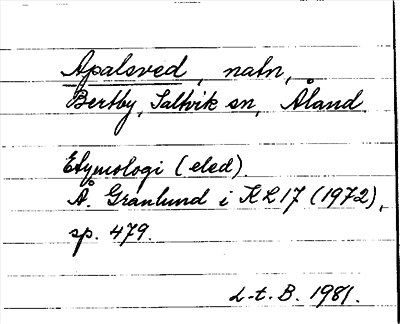 Apalsved, natn,
Bertby, Saltvik sn, Åland
Etymologi (eled).
Å. Granlund i KL 17 (1972),
sp. 479.
L-t. B. 1981.